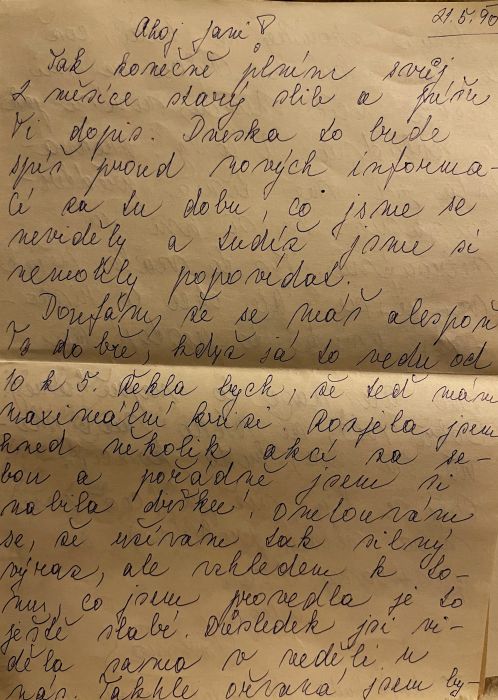 21.5.90
Ahoj Jani!
Tak konečně plním svůj
2 měsíce starý slib a píšu
Ti dopis. Dneska to bude
spíš proud nových informa-
cí za tu dobu, co jsme se
neviděly a tudíž jsme si
nemohly popovídat.
Doufám, že se máš alespoň
Ty dobře, když já to vedu od
10 k 5. Řekla bych, že teď mám
maximální krizi. Rozjela jsem
hned několik akcí za se-
bou a pořádně jsem si
nabila držku! Omlouvám
se, že užívám tak silný
výraz, ale vzhledem k to-
mu, co jsem provedla je to
ještě slabé. Důsledek jsi vi-
děla sama v neděli u
nás. Takhle ožraná jsem by-